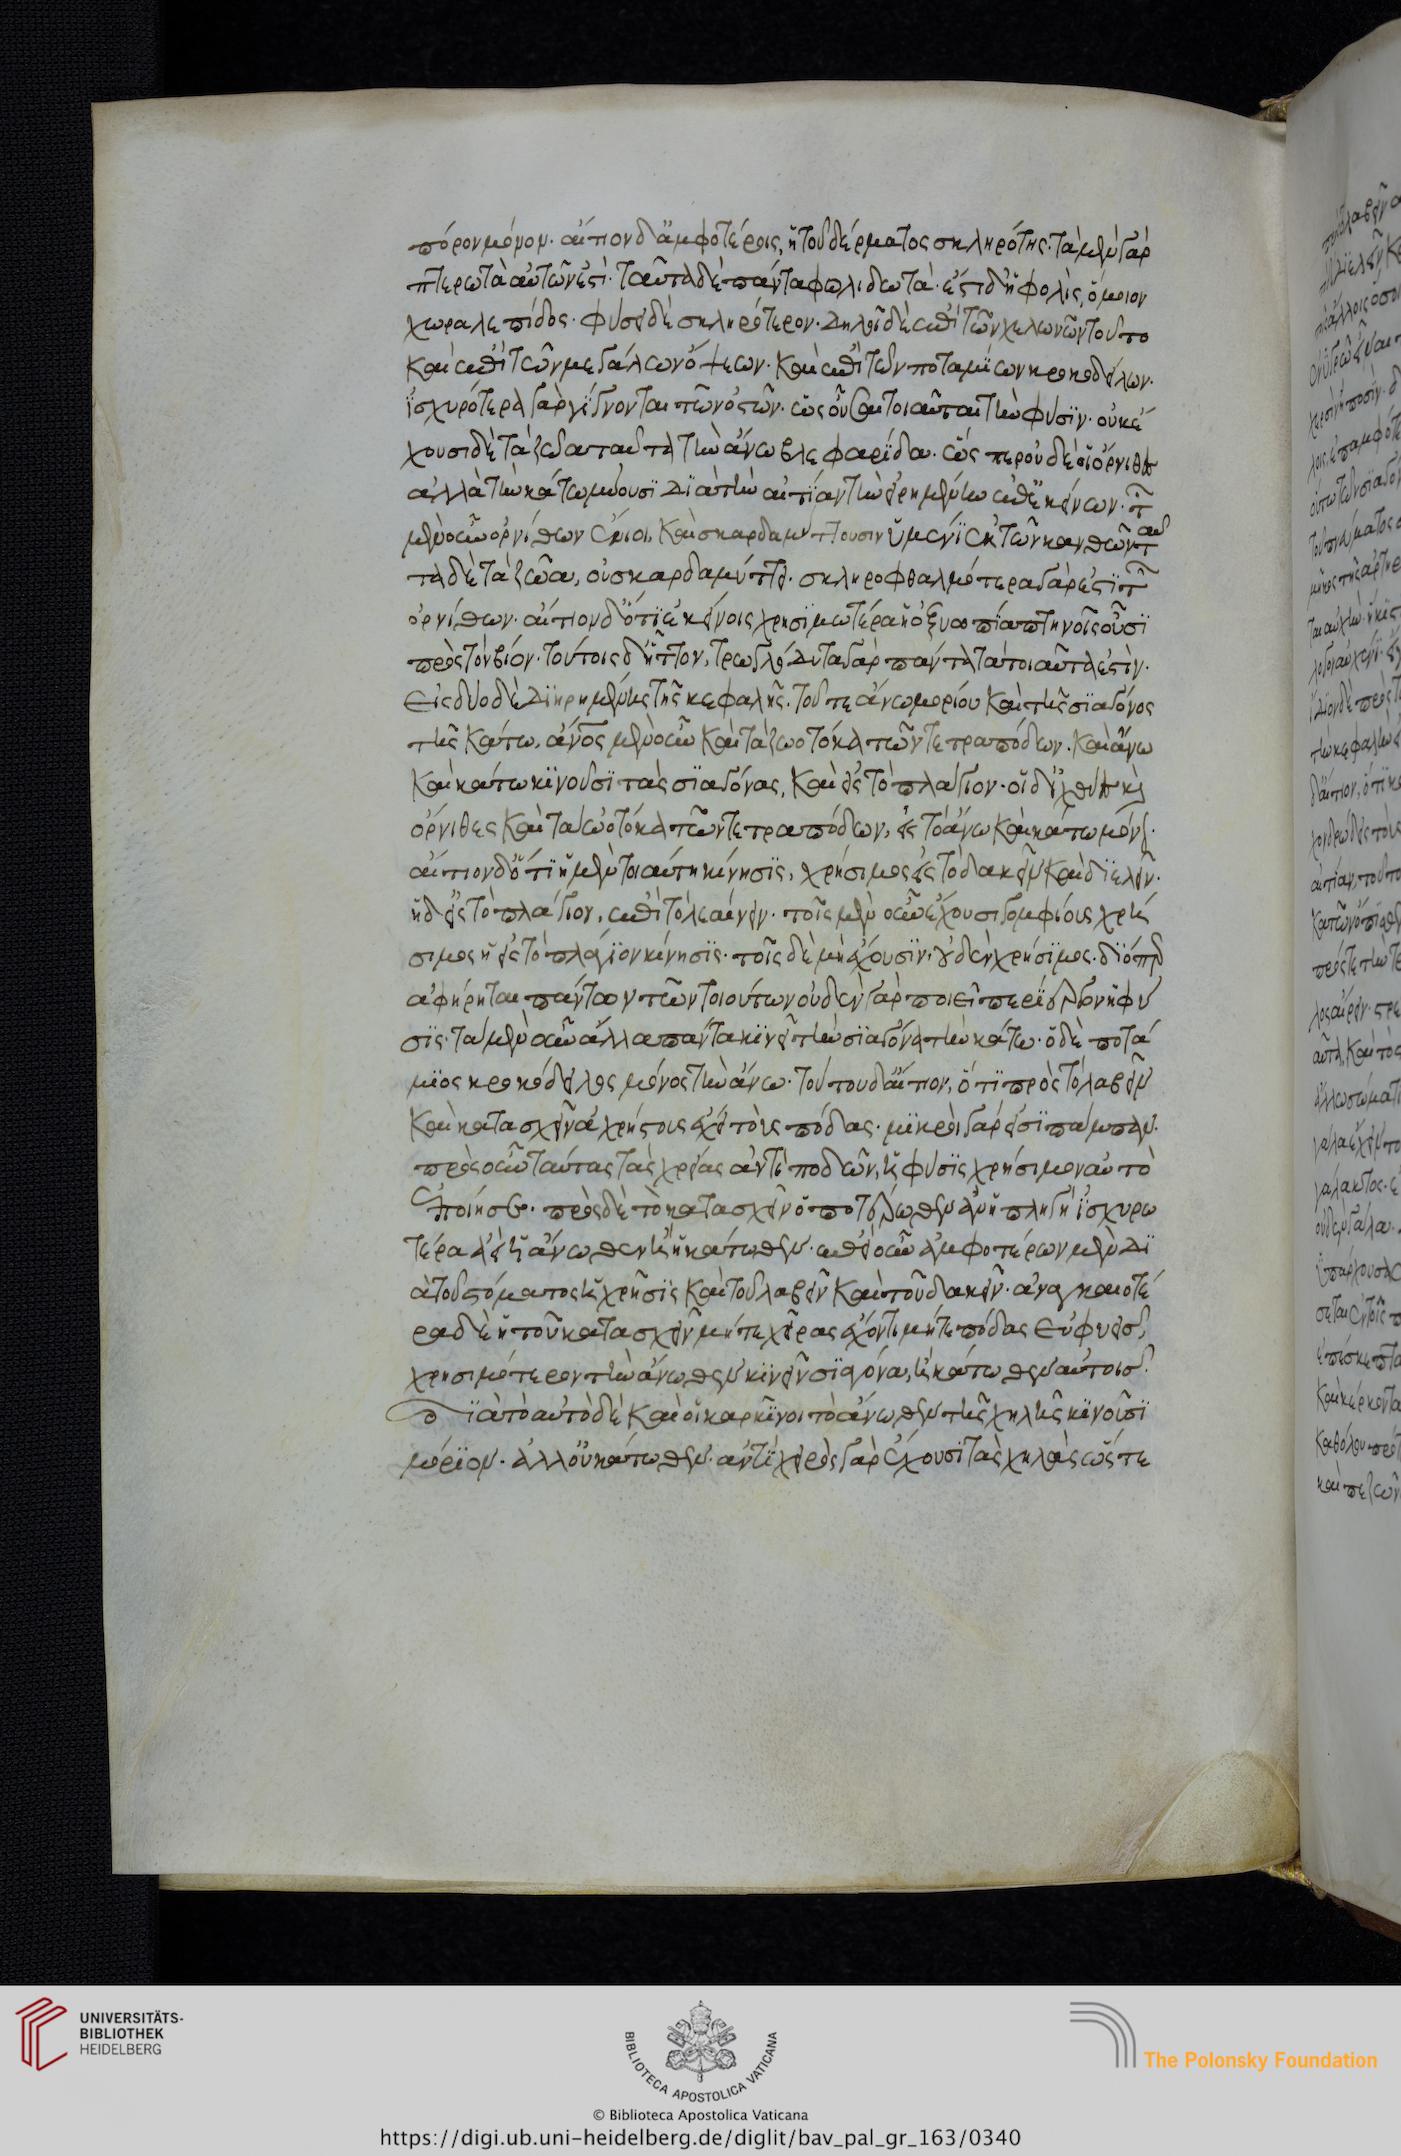 πόρον μόνον. αἴτιον δ' ἀμφοτέροις, ἡ τοῦ δέρματος σκληρότης. τὰ μὲν γὰρ
πτερωτὰ αὐτῶν ἐστί. ταῦτα δὲ πάντα φολιδωτά. ἔστι δ' ἡ φολὶς, ὅμοιον
χώρα λεπίδος. φύσει δὲ σκληρότερον. δηλοῖ δὲ ἐπὶ τῶν χελωνῶν τοῦτο
καὶ ἐπὶ τῶν μεγάλων ὄφεων. καὶ ἐπὶ τῶν ποταμίων κροκοδείλων.
ἰσχυρότεραι γὰρ γίγνονται τῶν ὀστῶν. ὡς οὖσαι τοιαῦται τὴν φύσιν. οὐκ ἔ
χουσι δὲ τὰ ζῶα ταῦτα τὴν ἄνω βλεφαρίδα. ὥσπερ οὐδὲ οἱ ὄρνιθες
ἀλλὰ τὴν κάτω μύουσι διὰ τὴν αἰτίαν τὴν εἰρημένην ἐπ' ἐκείνων. τῶν
μὲν οὖν ὀρνίθων ἔνιοι, καὶ σκαρδαμύττουσιν ὑμένι ἐκ τῶν κανθῶν ταῦ
τα δὲ τὰ ζῶα, οὐ σκαρδαμύττει. σκληροφθαλμότερα γάρ ἐστι τῶν
ὀρνίθων. αἴτιον δ' ὅτι ἐκείνοις χρησιμωτέρα ἡ ὀξυωπία πτηνοῖς οὖσι
πρὸς τὸν βίον. τούτοις δ' ἧττον, τρωγλόδυτα γὰρ πάντα τὰ τοιαῦτα ἐστὶν.
Εἰς δύο δὲ διῃρημένης τῆς κεφαλῆς. τοῦ τε ἄνω μορίου καὶ τῆς σιαγόνος
τῆς κάτω, ἄνος μὲν οὖν καὶ τὰ ζωοτόκα τῶν τετραπόδων. καὶ ἄνω
καὶ κάτω κινοῦσι τὰς σιαγόνας, καὶ εἰς τὸ πλάγιον. οἱ δ' ἰχθύες καὶ
ὄρνιθες καὶ τὰ ὠοτόκα τῶν τετραπόδων, εἰς τὸ ἄνω καὶ κάτω μόνον.
αἴτιον δ' ὅτι ἡ μὲν τοιαύτη κίνησις, χρήσιμος εἰς τὸ δακεῖν καὶ διελεῖν.
ἡ δ' εἰς τὸ πλάγιον, ἐπὶ τὸ λεαίνειν. τοῖς μὲν οὖν ἔχουσι γομφίους χρή
σιμος ἡ εἰς τὸ πλάγιον κίνησις. τοῖς δὲ μὴ ἔχουσιν. οὐδὲν χρήσιμος. διόπερ
ἀφήρηται πάντων τῶν τοιούτων οὐδὲν γὰρ ποιεῖ περίεργον ἡ φύ
σις. τὰ μὲν οὖν ἄλλα πάντα κινεῖ τὴν σιαγόνα τὴν κάτω. ὁ δὲ ποτά
μιος κροκόδειλος μόνος τὴν ἄνω. τούτου δ' αἴτιον, ὅτι πρὸς τὸ λαβεῖν
καὶ κατασχεῖν ἀχρήστους ἔχει τοὺς πόδας. μικροὶ γάρ εἰσι πάμπαν.
πρὸς οὖν ταύτας τὰς χρείας ἀντὶ ποδῶν, ἡ φύσις χρήσιμον αὐτὸ
ἐποίησεν. πρὸς δὲ τὸ κατασχεῖν ὁποτέρωθεν ἂν ἡ πληγὴ ἰσχυρο
τέρα εἴη ἄνωθεν ἢ κάτωθεν. ἐπεὶ οὖν ἀμφοτέρων μὲν δι
ὰ τοῦ στόματος ἡ χρῆσις καὶ τοῦ λαβεῖν καὶ τοῦ δακεῖν. ἀναγκαιοτέ
ρα δὲ ἡ τοῦ κατασχεῖν μήτε χεῖρας ἔχοντι μήτε πόδας εὐφυεῖς,
χρησιμότερον τὴν ἄνωθεν κινεῖν σιαγόνα, ἢ κάτωθεν αὐτοῖς.
Διὰ τὸ αὐτὸ δὲ καὶ οἱ καρκῖνοι τὸ ἄνωθεν τῆς χηλῆς κινοῦσι
μόριον. ἀλλ' οὐ κάτωθεν. ἀντὶ χειρὸς γὰρ ἔχουσι τὰς χηλὰς ὥστε
UNIVERSITÄTS-
BIBLIOTHEK
HEIDELBERG
BIBLIOTECA APOSTOLICA VATICANA
The Polonsky Foundation
© Biblioteca Apostolica Vaticana
https://digi.ub.uni-heidelberg.de/diglit/bav_pal_gr_163/0340